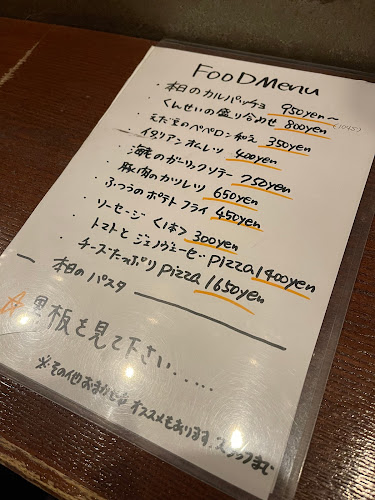 FooD Menu
・本日のカルパッチョ 950yen〜
・くんせいの盛り合わせ 800yen
・えだ豆のペペロン和え 350yen
イタリアンオムレツ 400yen
・海老のガーリックソテー 750yen
・豚肉のカツレツ 650yen
・ふつうのポテトフライ 450yen
・ソーセージ〈1本〉 300yen
・トマトとジェノヴェーゼ pizza 1400yen
・チーズたっぷり pizza 1650yen
本日のパスタ
☆黒板を見て下さい……
※その他おまかせやオススメもあります。スタッフまで